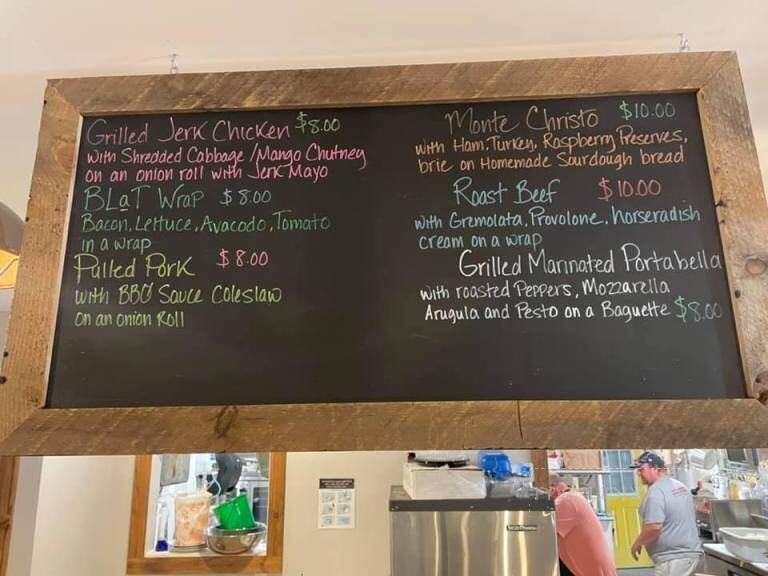 Grilled Jerk Chicken $8.00
with Shredded Cabbage / Mango Chutney
on an onion roll with Jerk Mayo
BLaT Wrap $8.00
Bacon, Lettuce, Avacado, Tomato
in a wrap
Pulled Pork $8.00
with BBQ Sauce Coleslaw
on an onion Roll
Monte Christo $10.00
with Ham, Turkey, Raspberry Preserves,
brie on Homemade Sourdough bread
Roast Beef $10.00
with Gremolata, Provolone, horseradish
cream on a wrap
Grilled Marinated Portabella
with roasted Peppers, Mozzarella
Arugula and Pesto on a Baguette $8.00